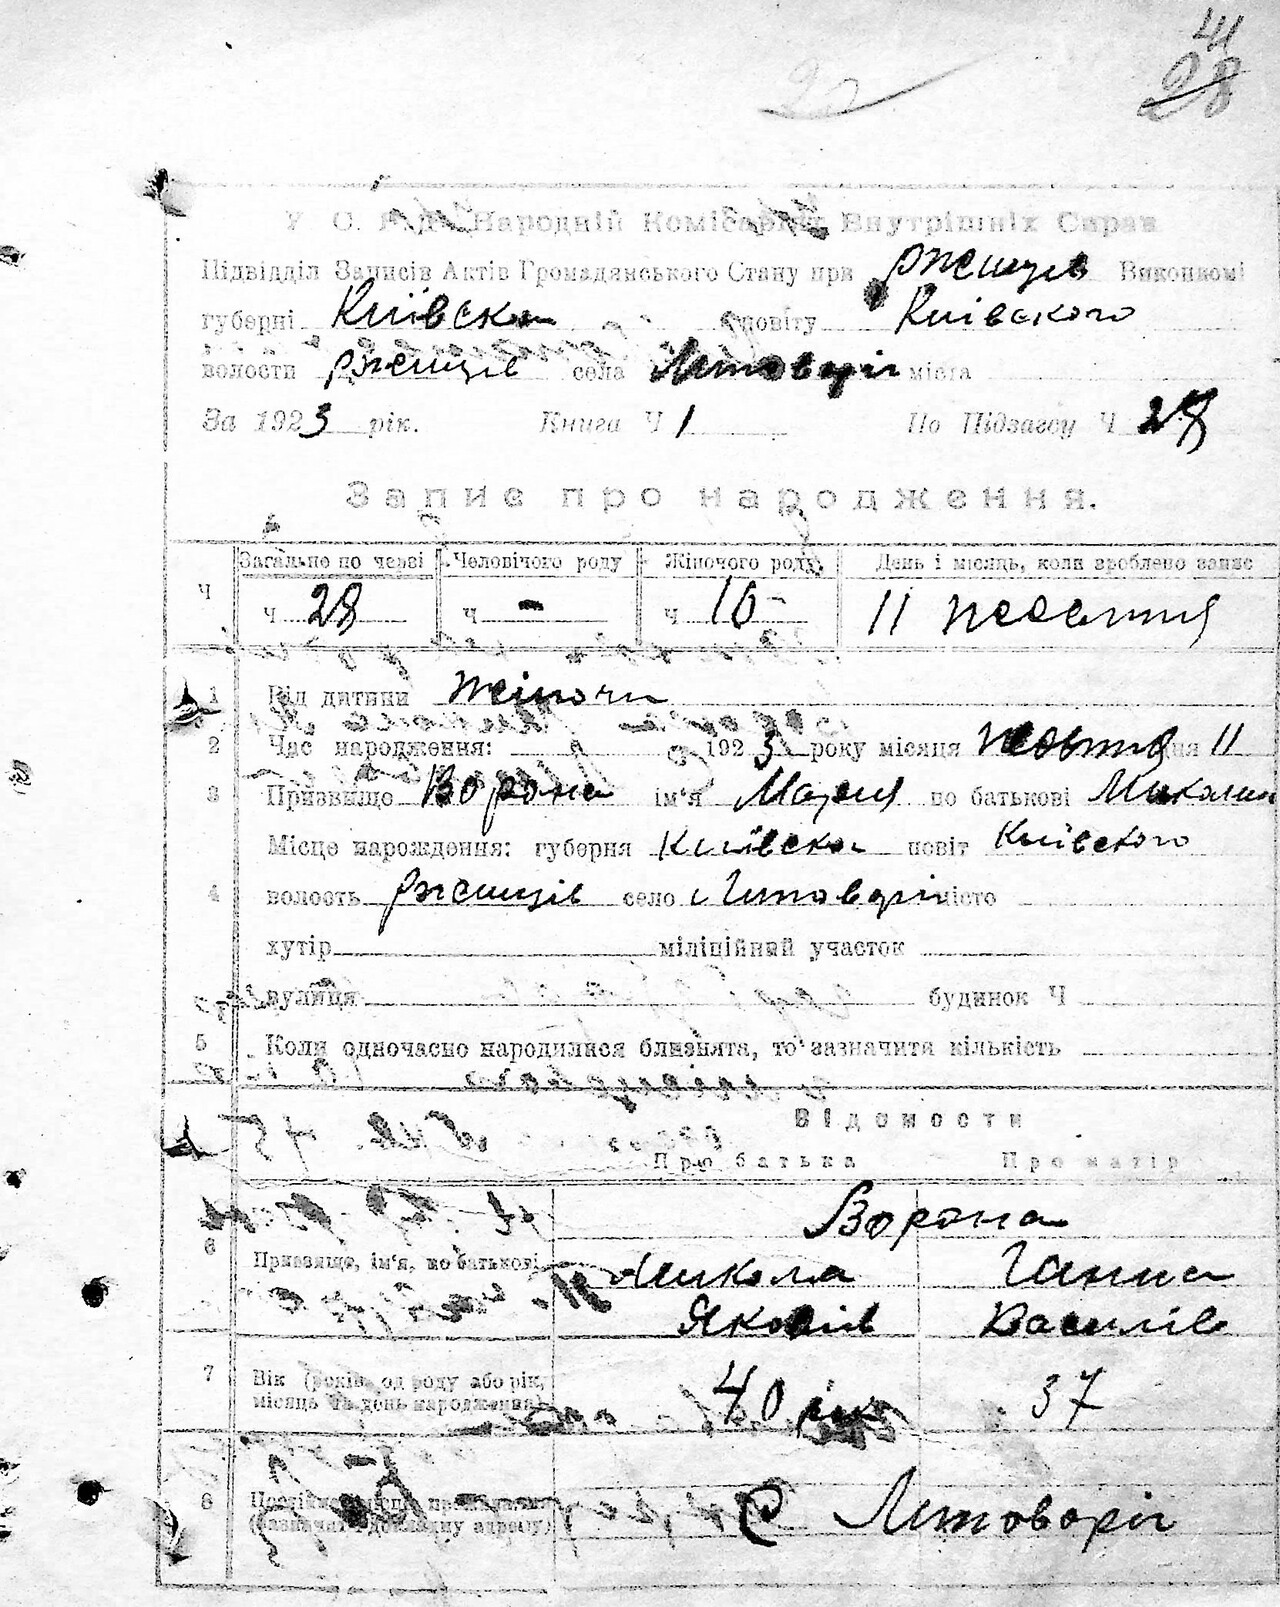 41
28
У. С. Р. Р. Народній Комісаріят Внутрішніх Справ
Підвідділ Записів Актів Громадянського Стану при Ржищів Виконкомі
губерні Київска повіту Київского
волости Ржищів села міста
За 1923 рік. Книга Ч 1 По Підзагсу Ч 28
Запис про народження.
Загальне по черзі Чоловічого роду Жіночого роду День і місяць, коли зроблено запис
Ч ч 28 ч - ч 10 - 11 жовтня
1 Від дитини жіночи
2 Час народження: 1923 року місяця жовтня дня 11
3 Призвище Ворона ім'я Мария по батькові
Місце народження: губерня Київска повіт Київского
4 волость Ржищів село місто
хутір міліційний участок
вулиця будинок Ч
5 Коли одночасно народилися близнята, то зазначити кількість
Відомости
Про батька Про матір
Ворона
6 Призвище, ім'я, по батькові Микола Ганна
Яковів Василів
7 Вік (років од роду або рік, місяць та день народження) 40 рік 37
8 С